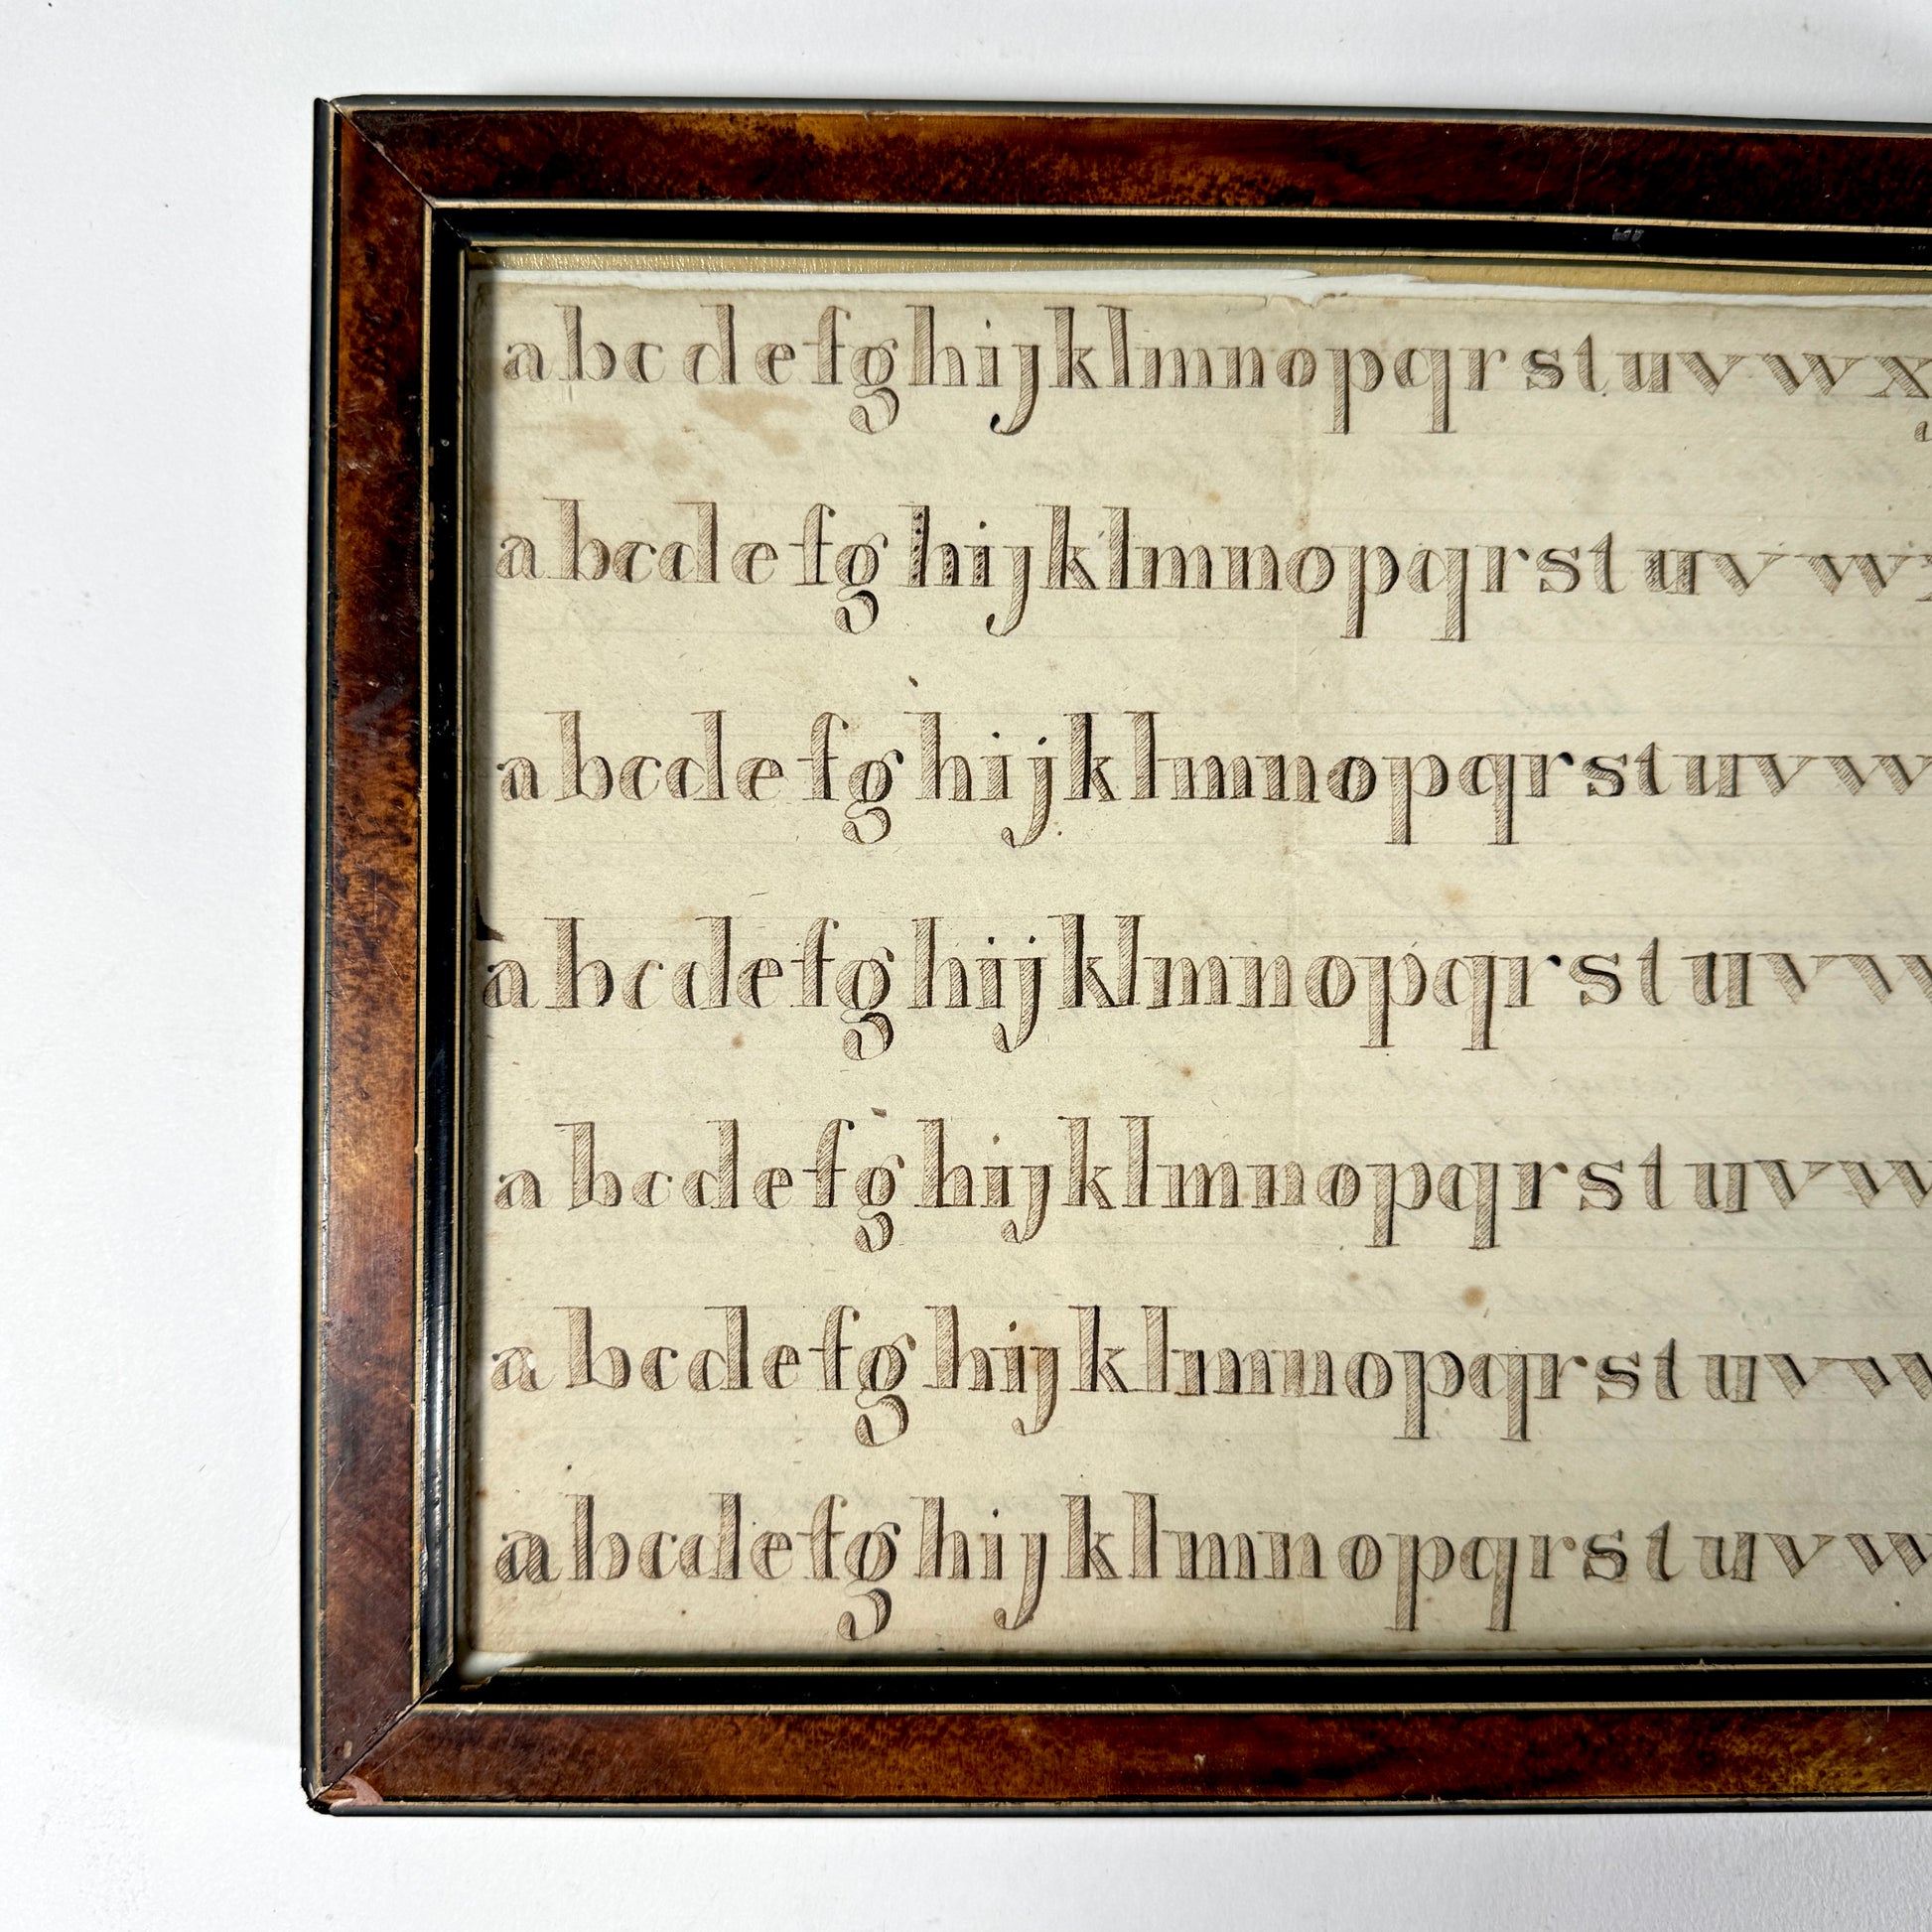 a b c d e f g h i j k l m n o p q r s t u v w x y
a b c d e f g h i j k l m n o p q r s t u v w x
a b c d e f g h i j k l m n o p q r s t u v w
a b c d e f g h i j k l m n o p q r s t u v w
a b c d e f g h i j k l m n o p q r s t u v w
a b c d e f g h i j k l m n o p q r s t u v w
a b c d e f g h i j k l m n o p q r s t u v w